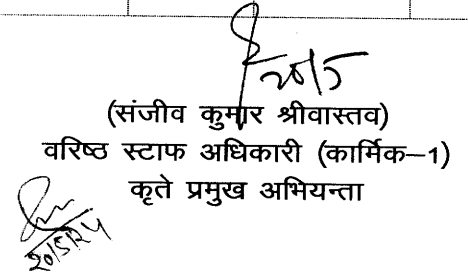 20/5
(संजीव कुमार श्रीवास्तव)
वरिष्ठ स्टाफ अधिकारी (कार्मिक–1)
कृते प्रमुख अभियन्ता
20/5/24